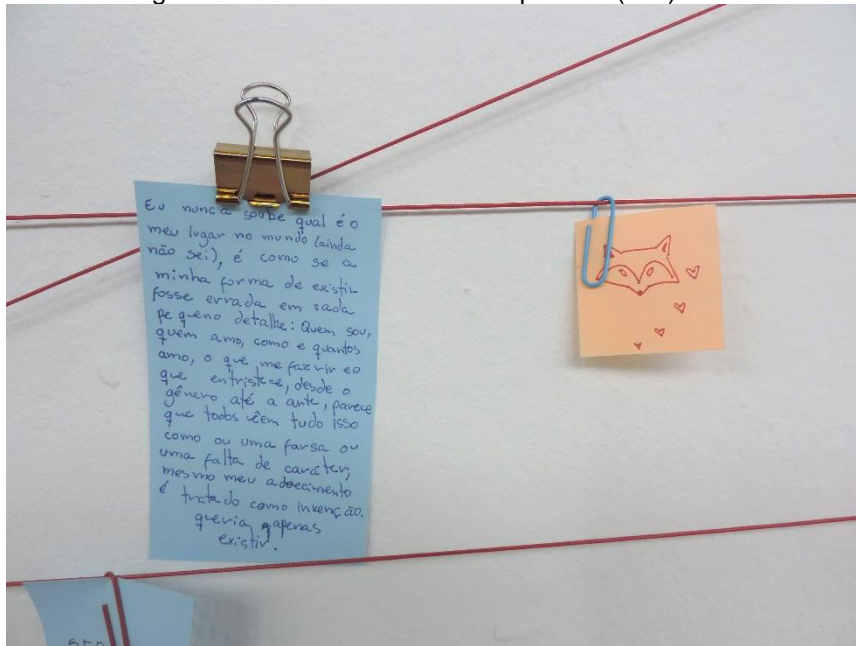 Eu nunca soube qual é o
meu lugar no mundo (ainda
não sei), é como se a
minha forma de existir
fosse errada em cada
pequeno detalhe: Quem sou,
quem amo, como e quantos
amo, o que me faz rir e o
que entristece, desde o
gênero até a arte, parece
que todos vêem tudo isso
como ou uma farsa ou
uma falta de caráter,
mesmo meu adoecimento
é tratado como invenção.
queria apenas
existir.